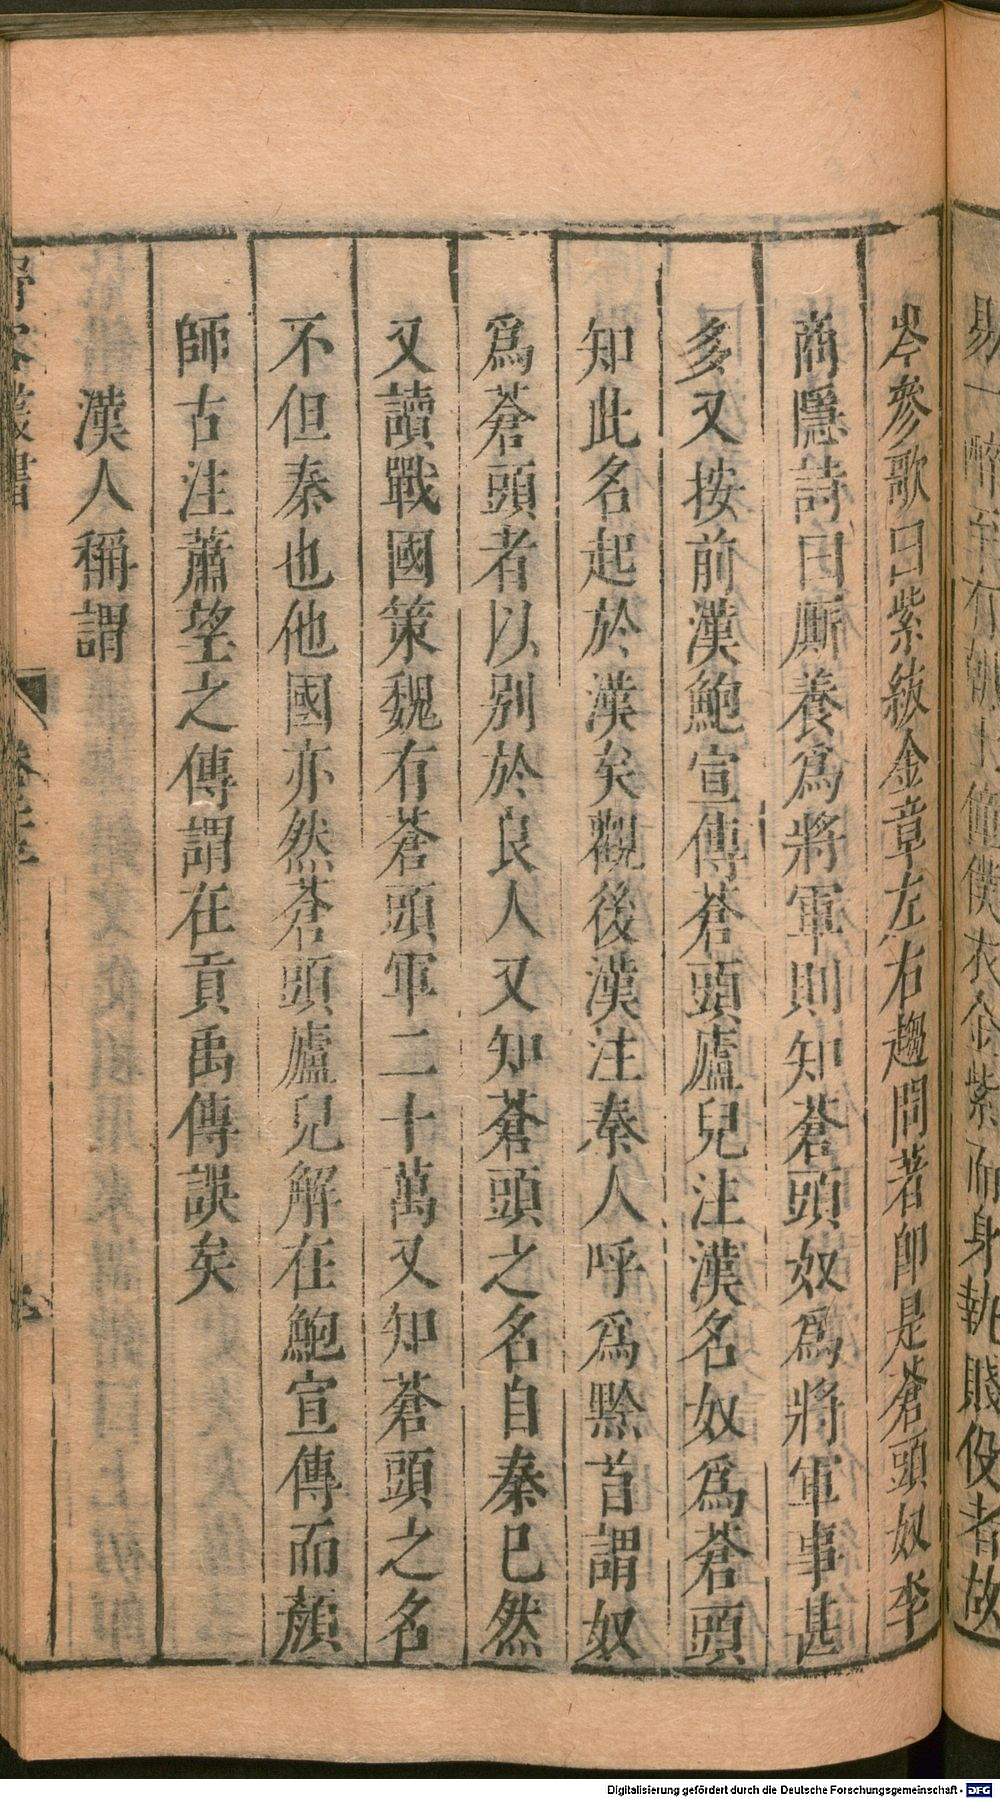 易一醉至有
僮僕衣金紫而身執賤役者故
岑參歌曰紫紱金章左右趨問著即是蒼頭奴李
商隱詩曰廝養爲將軍則知蒼頭奴爲將軍事甚
多又按前漢鮑宣傳蒼頭廬兒注漢名奴爲蒼頭
知此名起於漢矣觀後漢注秦人呼爲黔首謂奴
爲蒼頭者以别於良人又知蒼頭之名自秦已然
又讀戰國策魏有蒼頭軍二十萬又知蒼頭之名
不但秦也他國亦然蒼頭廬兒解在鮑宣傳而顏
師古注蕭望之傳謂在貢禹傳誤矣
漢人稱謂
野客叢書
Digitalisierung gefördert durch die Deutsche Forschungsgemeinschaft - DFG